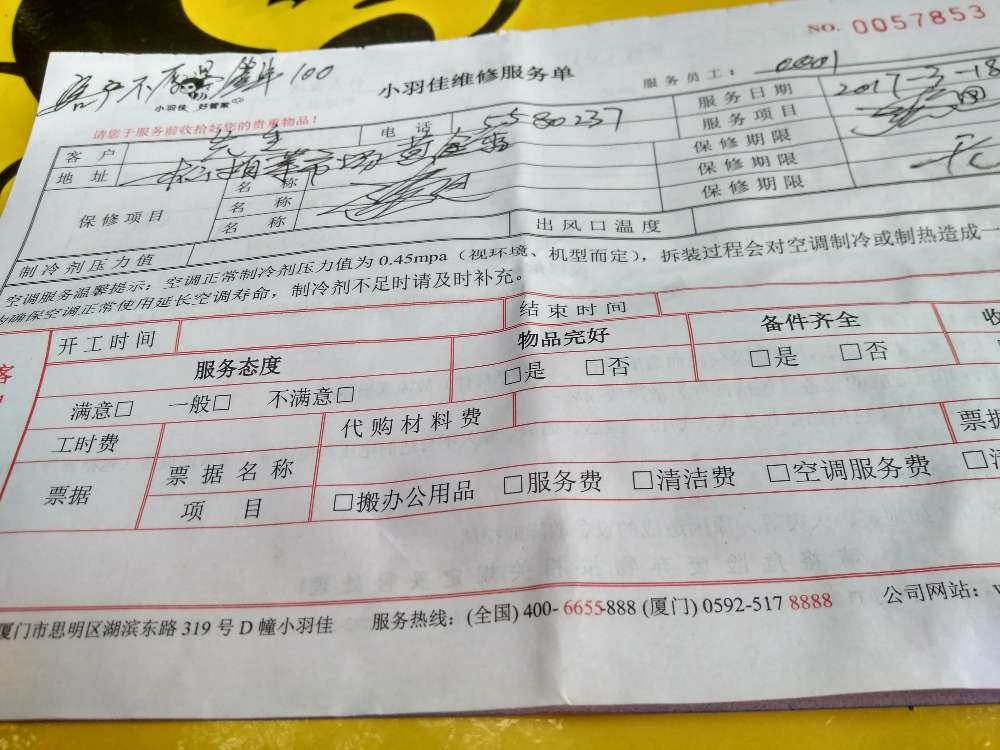 NO. 0057853
客户不愿 签单 100
小羽佳 好管家
小羽佳维修服务单
服务员工:
请您于服务前收拾好您的贵重物品!
客户 先生 电话 5580237 服务日期 2017-3-18
地址 菜市场 服务项目
保修项目 名称 保修期限
名称 保修期限
名称 保修期限
制冷剂压力值 出风口温度
空调服务温馨提示:空调正常制冷剂压力值为 0.45mpa(视环境、机型而定),拆装过程会对空调制冷或制热造成一
确保空调正常使用延长空调寿命,制冷剂不足时请及时补充。
开工时间 结束时间
服务态度 物品完好 备件齐全 收
满意□ 一般□ 不满意□ □是 □否 □是 □否
工时费 代购材料费
票据 票据名称 票据
项目 □搬办公用品 □服务费 □清洁费 □空调服务费
厦门市思明区湖滨东路 319 号 D 幢小羽佳 服务热线:(全国) 400-6655-888 (厦门) 0592-517 8888 公司网站: